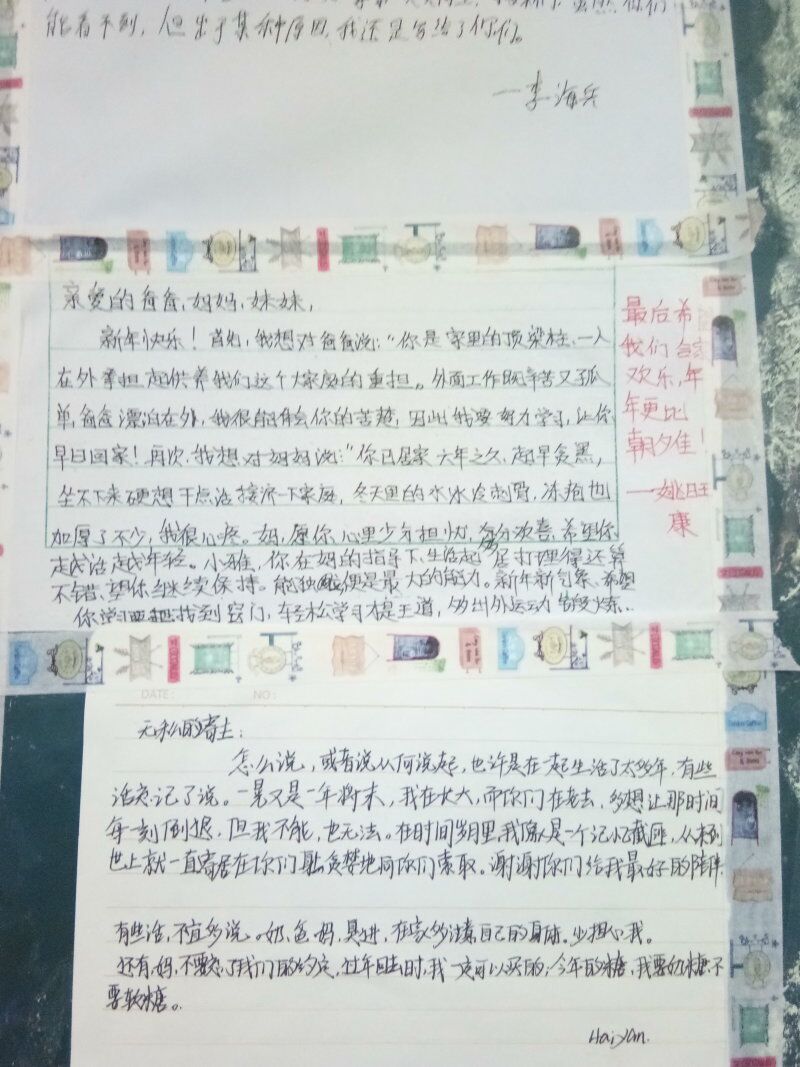 能看不到，但出于某种原因，我还是写给了你们。
一李海兵
亲爱的爸爸，妈妈，妹妹，
新年快乐！首先，我想对爸爸说：“你是家里的顶梁柱，一人
在外承担起供养我们这个大家庭的重担。外面工作既辛苦又孤
单，爸爸漂泊在外，我很能体会你的苦楚，因此我要努力学习，让你
早日回家！再次，我想对妈妈说：“你已居家六年之久，起早贪黑，
坐不下来硬想干点活接济一下家庭，冬天里的水冰冷刺骨，冻疮也
加厚了不少，我很心疼。妈，愿你心里少分担忧，多分欢喜，希望你
越活越年轻。小雅，你在妈的指导下，生活起居打理得还算
不错，望你继续保持。能独便是最大的能力。新年新气象，希望
你学习要找到窍门，轻松学习才是王道，多出外运动锻炼..
最后希
我们合家
欢乐，年
年更比
朝夕佳！
—姚旺
康
DATE: NO:
无私的寄主：
怎么说，或者说从何说起，也许是在一起生活了太多年，有些
话忘记了说。一晃又是一年将末，我在长大，而你们在老去，多想让那时间
每一刻倒退，但我不能，也无法。在时间岁月里，我像是一个记忆截匪，从来到
世上就一直寄居在你们，贪婪地向你们索取。谢谢你们给我最好的陪伴.
有些话，不宜多说。奶，爸，妈，具进，在家多注意自己的身体。少担心我。
还有，妈，不要忘了我们的约定，过年回去时，我一定可以买的；今年的糖，我要奶糖，不
要软糖。
HaiYan.